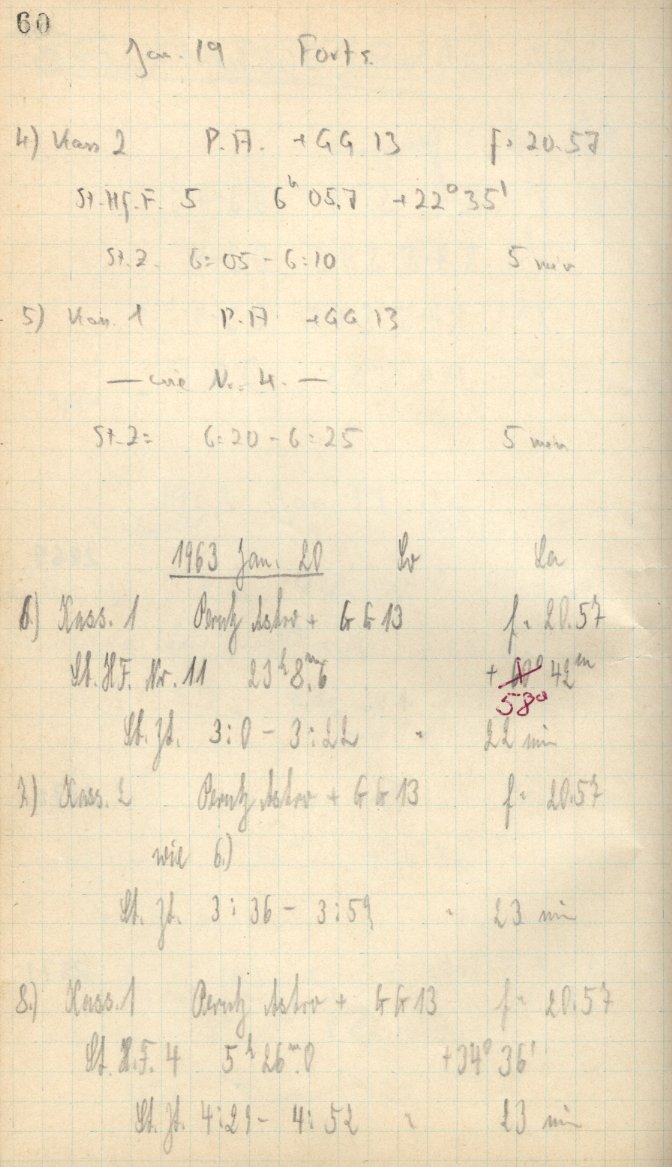 60
Jan. 19 Forts.
4) Kass 2 P.A. + GG 13 f = 20.57
St.Hf.F. 5 6h 05.7 +22° 35'
St.Z. 6:05 - 6:10 5 min
5) Kass. 1 P.A +GG 13
— wie Nr. 4. —
St.Z: 6:20 - 6:25 5 min
1963 Jan. 20
6.) Kass. 1 Perutz Astro + GG 13 f = 20.57
St. H.F. Nr. 11 23h 8m.6 + 42m
58°
St. Zt. 3:0 - 3:22 " 22 min
7.) Kass. 2 Perutz Astro + GG 13 f = 20.57
wie 6.)
St. Zt. 3:36 - 3:59 " 23 min
8.) Kass. 1 Perutz Astro + GG 13 f = 20.57
St. H.F. 4 5h 26m.0 +34° 36'
St. Zt. 4:29 - 4:52 " 23 min